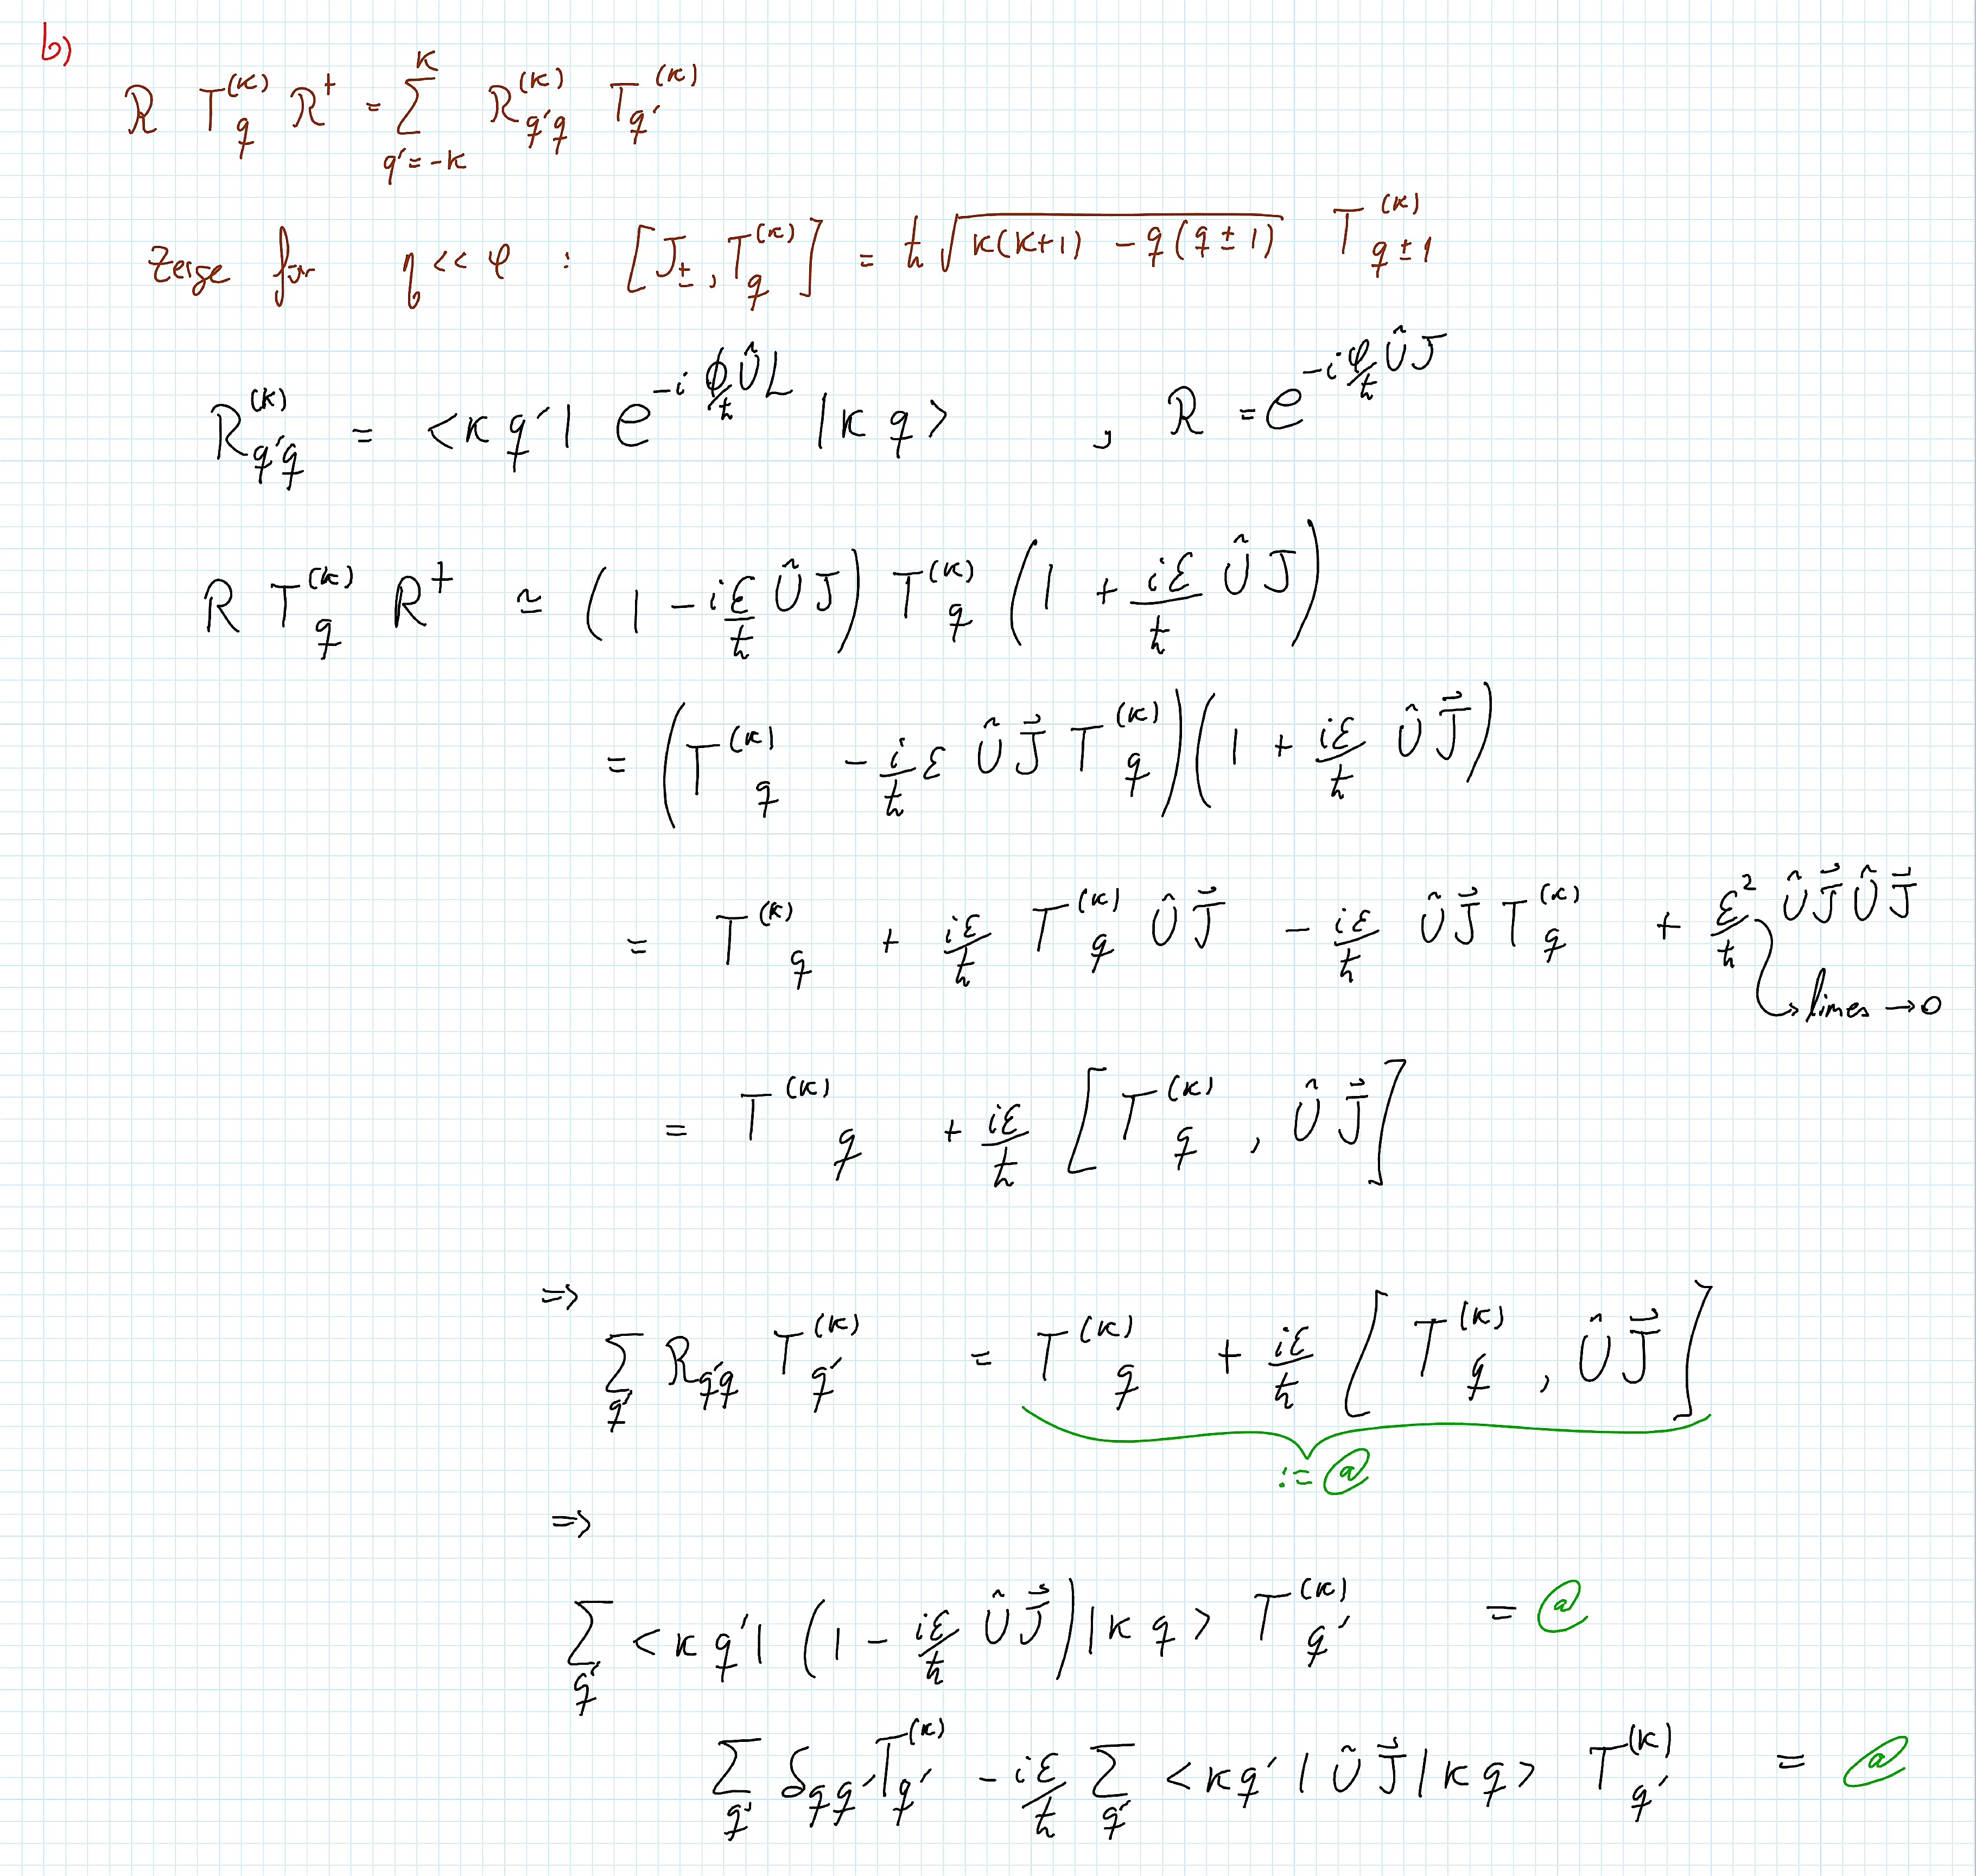 b)
R T_q^(κ) R^† = Σ_{q'=-κ}^{κ} R_{q'q}^(κ) T_{q'}^(κ)
Zeige für η << φ : [J_±, T_q^(κ)] = ħ √(κ(κ+1) - q(q±1)) T_{q±1}^(κ)
R_{q'q}^(κ) = <κ q'| e^{-i ϕ/ħ Û L} |κ q> , R = e^{-i φ/ħ Û J}
R T_q^(κ) R^† ≃ (1 - iε/ħ Û J) T_q^(κ) (1 + iε/ħ Û J)
= (T_q^(κ) - i/ħ ε Û J⃗ T_q^(κ)) (1 + iε/ħ Û J⃗)
= T_q^(κ) + iε/ħ T_q^(κ) Û J⃗ - iε/ħ Û J⃗ T_q^(κ) + ε²/ħ Û J⃗ Û J⃗
↪ limes → 0
= T_q^(κ) + iε/ħ [T_q^(κ), Û J⃗]
=>
Σ_{q'} R_{q'q} T_{q'}^(κ) = T_q^(κ) + iε/ħ [T_q^(κ), Û J⃗]
:= ⓐ
=>
Σ_{q'} <κ q'| (1 - iε/ħ Û J⃗) |κ q> T_{q'}^(κ) = ⓐ
Σ_{q'} δ_{qq'} T_{q'}^(κ) - iε/ħ Σ_{q'} <κq'| Û J⃗ |κ q> T_{q'}^(κ) = ⓐ